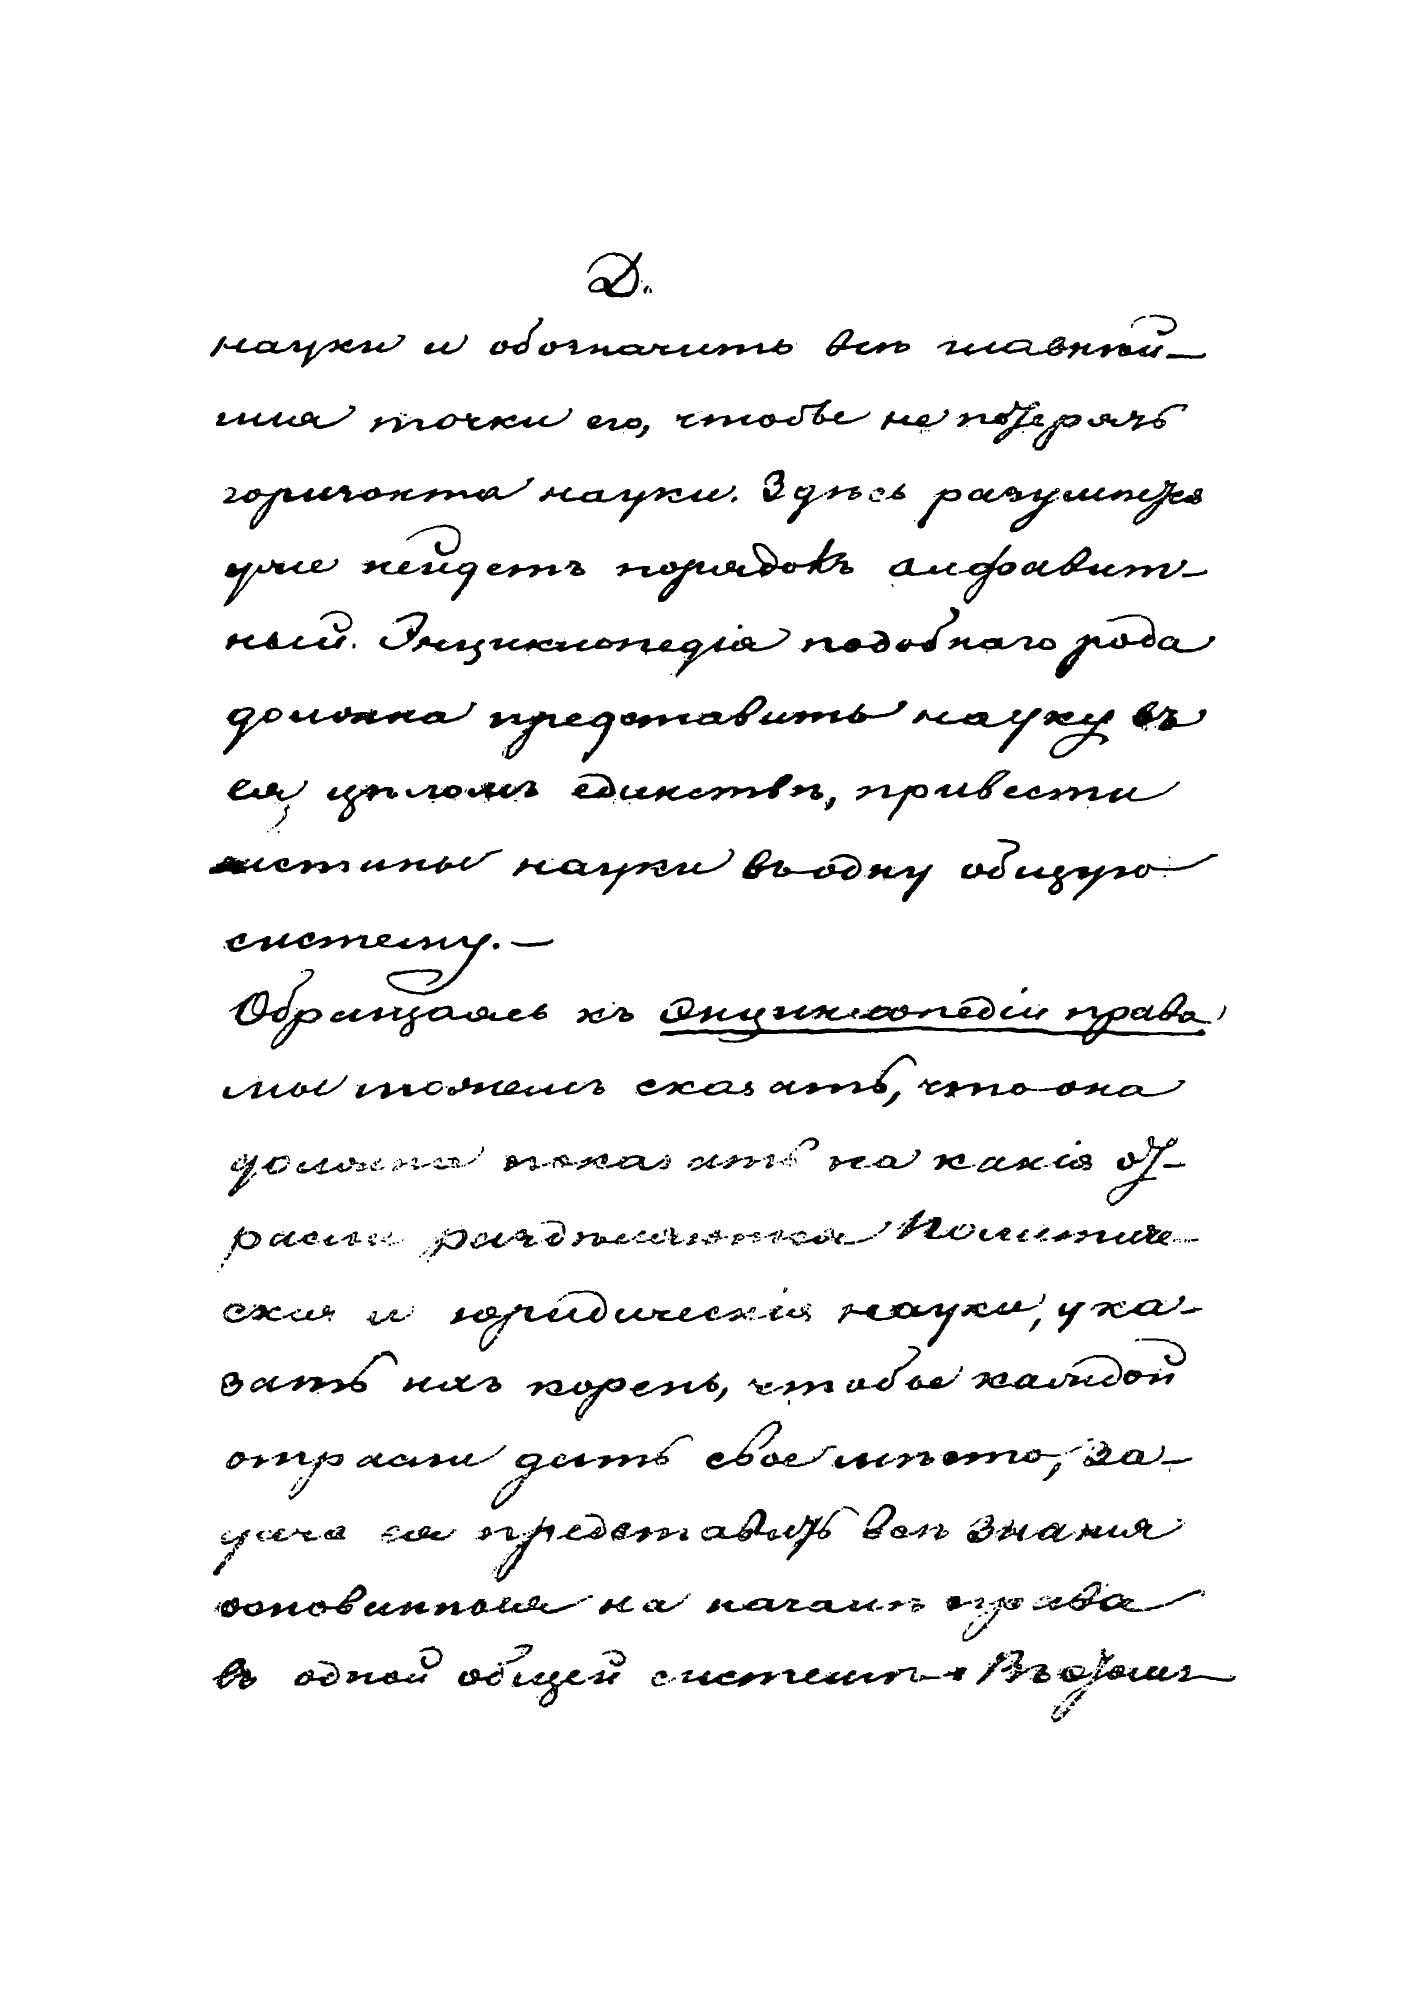 Д.
науки и обозначить всѣ главнѣй-
шия точки его, чтобы не потерять
горизонта науки. Здѣсь разумѣется
уже нейдетъ порядокъ алфавит-
ный. Энциклопедія подобнаго рода
должна представить науку въ
ея цѣломъ единствѣ, привести
истины науки въ одну общую
систему. —
Обращаясь къ Энциклопедіи права
мы можемъ сказать, что она
должна показать на какія от-
расли раздѣляются Политиче-
ския и юридическія науки, ука-
зать ихъ корень, чтобы каждой
отрасли дать свое мѣсто, за-
дача ея представить всѣ знания
основанныя на началѣ права
въ одной общей системѣ. Въ этомъ